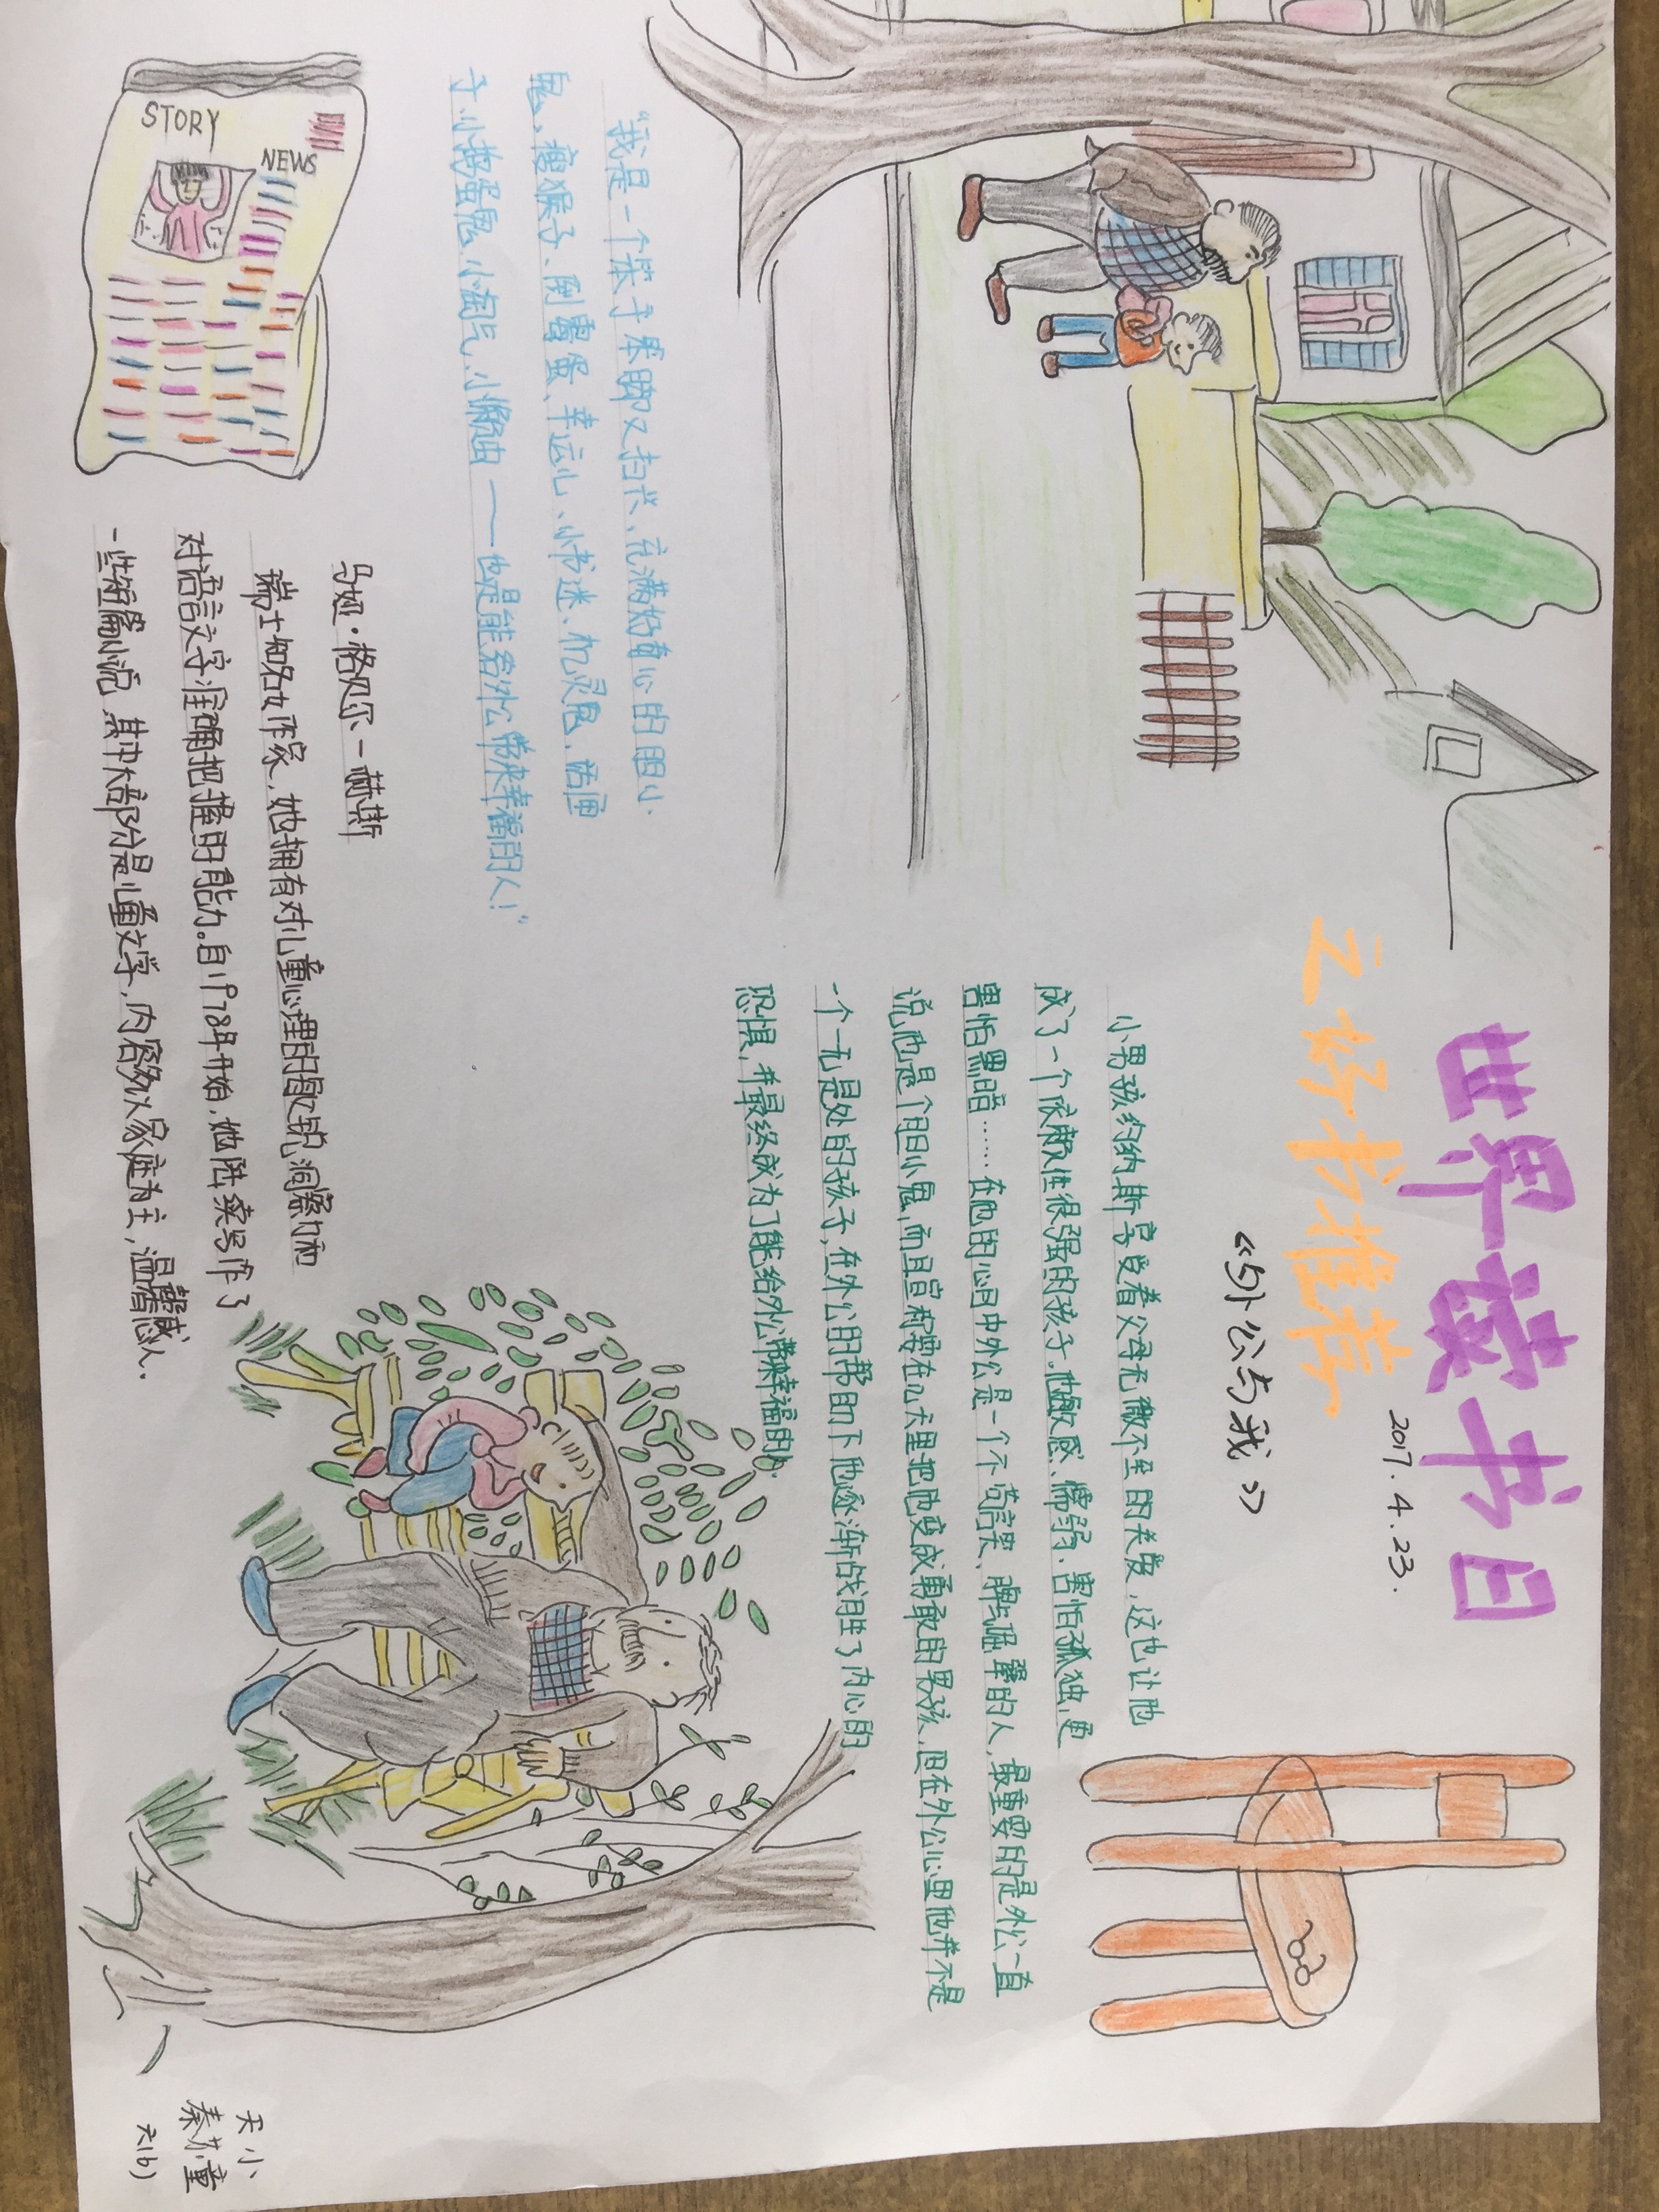 世界读书日
2017.4.23.
之好书推荐
《外公与我》
小男孩约纳斯享受着父母无微不至的关爱，这也让他
成了一个依赖性很强的孩子。他敏感、懦弱、害怕孤独，更
害怕黑暗……在他的心目中外公是一个不苟言笑、脾气倔犟的人，最重要的是外公一直
说他是个胆小鬼，而且宣称要在乙大里把他变成勇敢的男孩，但在外公心里他并不是
一个一无是处的孩子，在外公的帮助下他逐渐战胜了内心的
恐惧，并最终成为了能给外公带来幸福的人。
“我是一个笨手笨脚又扫兴、充满好奇心的胆小
鬼、瘦猴子、倒霉蛋、幸运儿、小书迷、机灵鬼、话匣
子、小捣蛋鬼、小淘气、小懒虫——也是能给外公带来幸福的人！”
STORY
NEWS
马娅·格贝尔－赫斯
瑞士知名女作家，她拥有对儿童心理的敏锐洞察力和
对语言文字准确把握的能力。自1978年开始，她陆续写作了
一些短篇小说，其中大部分是儿童文学，内容多以家庭为主，温馨感人.
天小
秦苏童
六(6)